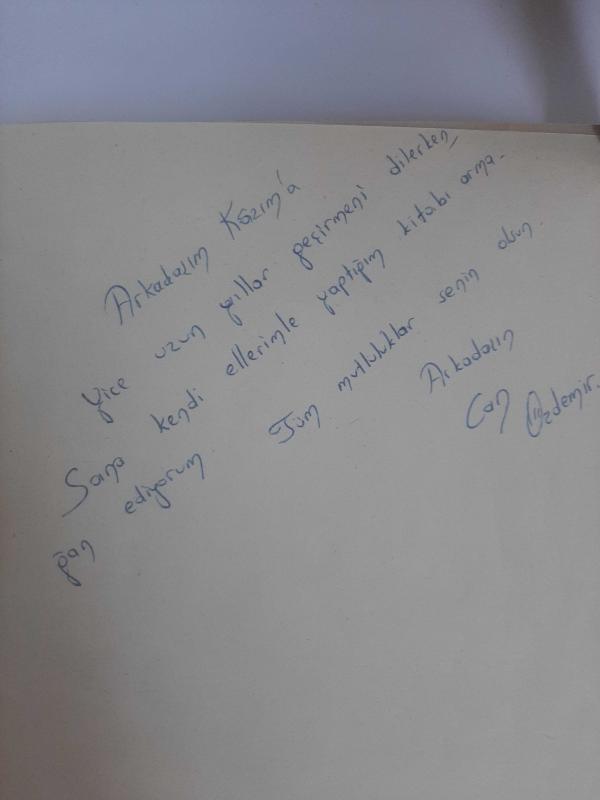 Arkadaşım Kâzım'a
Nice uzun yıllar geçirmeni dilerken,
Sana kendi ellerimle yaptığım kitabı arma-
ğan ediyorum. Tüm mutluluklar senin olsun.
Arkadaşın
Can Özdemir.